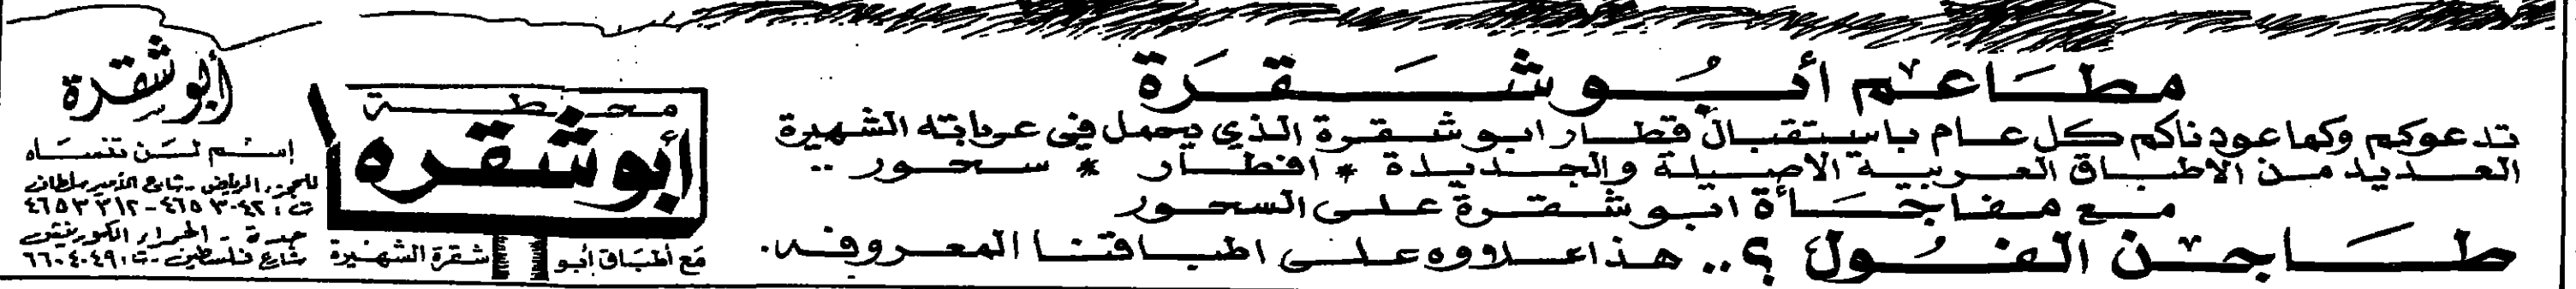 مطاعم أبو شقرة
تدعوكم وكما عودناكم كل عام باستقبال قطار ابو شقرة الذي يحمل في عرباته الشهيرة
العديد من الاطباق العربية الاصيلة والجديدة * افطار * سحور ..
مع مفاجأة ابو شقرة على السحور
طاجن الفول ؟.. هذا علاووه على اطباقنا المعروفه.
محطة
أبو شقره
مع أطباق أبو شقرة الشهيرة
أبو شقرة
إسم لن تنساه
للحجز، الرياض - شارع الأمير سلطان
ت: ٤٦٥٣٠٤٢ - ٤٦٥٣٣١٢
جدة - الحمراء الكورنيش
شارع فلسطين - ت: ٦٦٠٤٠٤٩